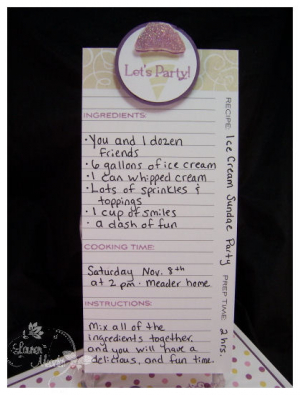 Let's Party!
INGREDIENTS:
• You and 1 dozen
friends
• 6 gallons of ice cream
• 1 can whipped cream
• Lots of sprinkles &
toppings
• 1 cup of smiles
• a dash of fun
COOKING TIME:
Saturday Nov. 8th
at 2 pm · Meader home
INSTRUCTIONS:
Mix all of the
ingredients together,
and you will have a
delicious, and fun time.
RECIPE: Ice Cream Sundae Party
PREP TIME: 2 hrs.
Lauren